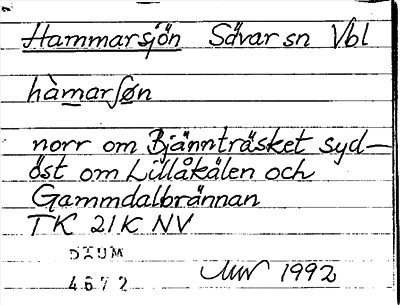 Hammarsjön Sävar sn Vbl
hàmarʃøn
norr om Bjännträsket syd-
öst om Lillåkälen och
Gammdalbrännan
TK 21K NV
DAUM
4672
1992